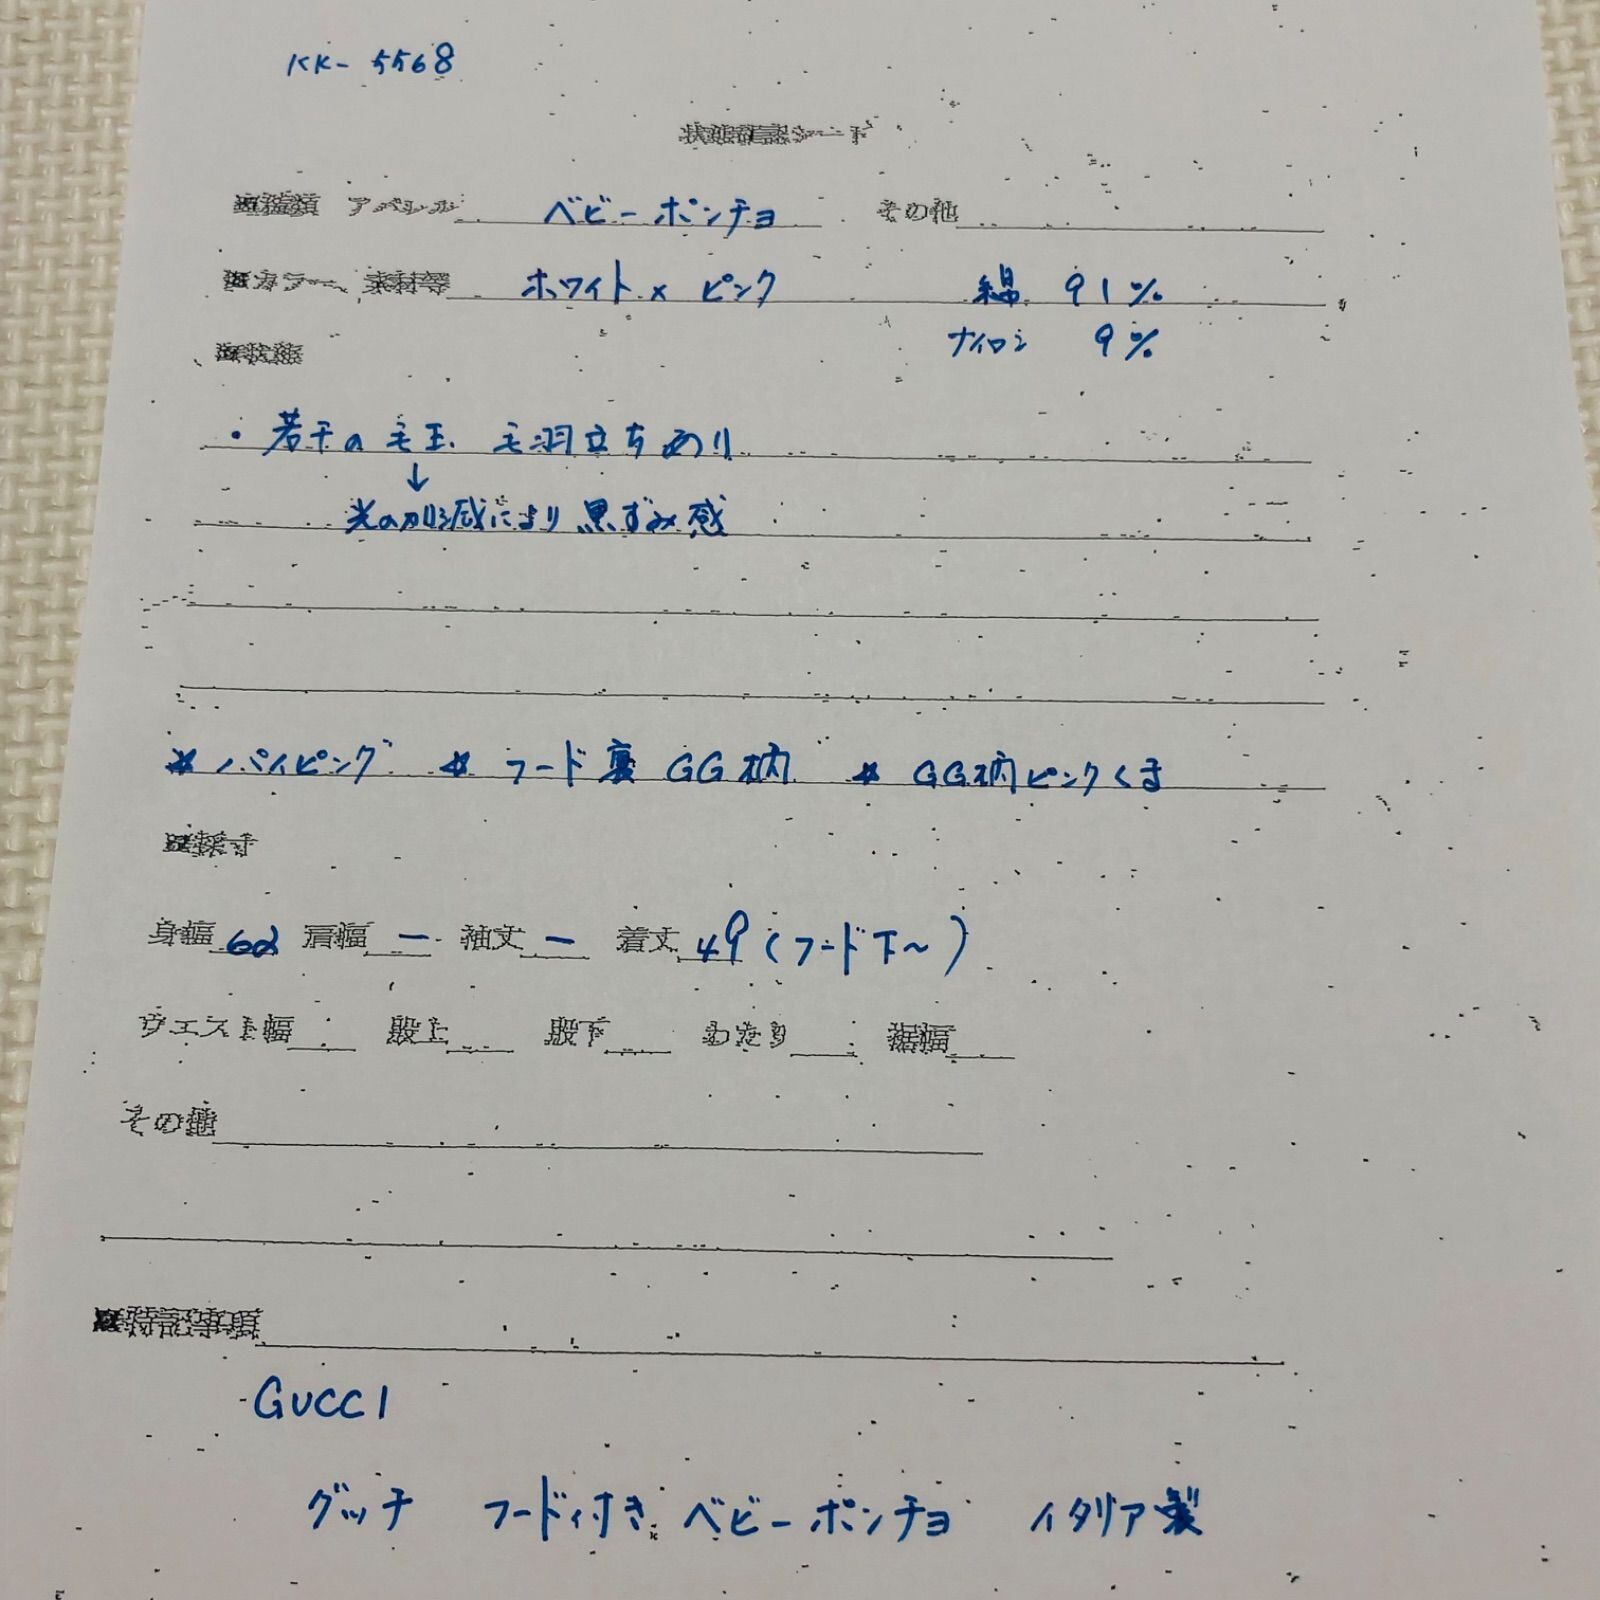 KK-5568
状態確認シート
■種類 アパレル ベビーポンチョ その他
■カラー、素材等 ホワイト×ピンク 綿 91%
ナイロン 9%
■状態
・若干の毛玉、毛羽立ちあり
↓
光の加減により黒ずみ感
*パイピング *フード裏GG柄 *GG柄ピンクくま
■採寸
身幅 62 肩幅 ー 袖丈 ー 着丈 49(フード下〜)
ウエスト幅 股上 股下 わたり 裾幅
その他
■特記事項
GUCCI
グッチ フード付き ベビーポンチョ イタリア製